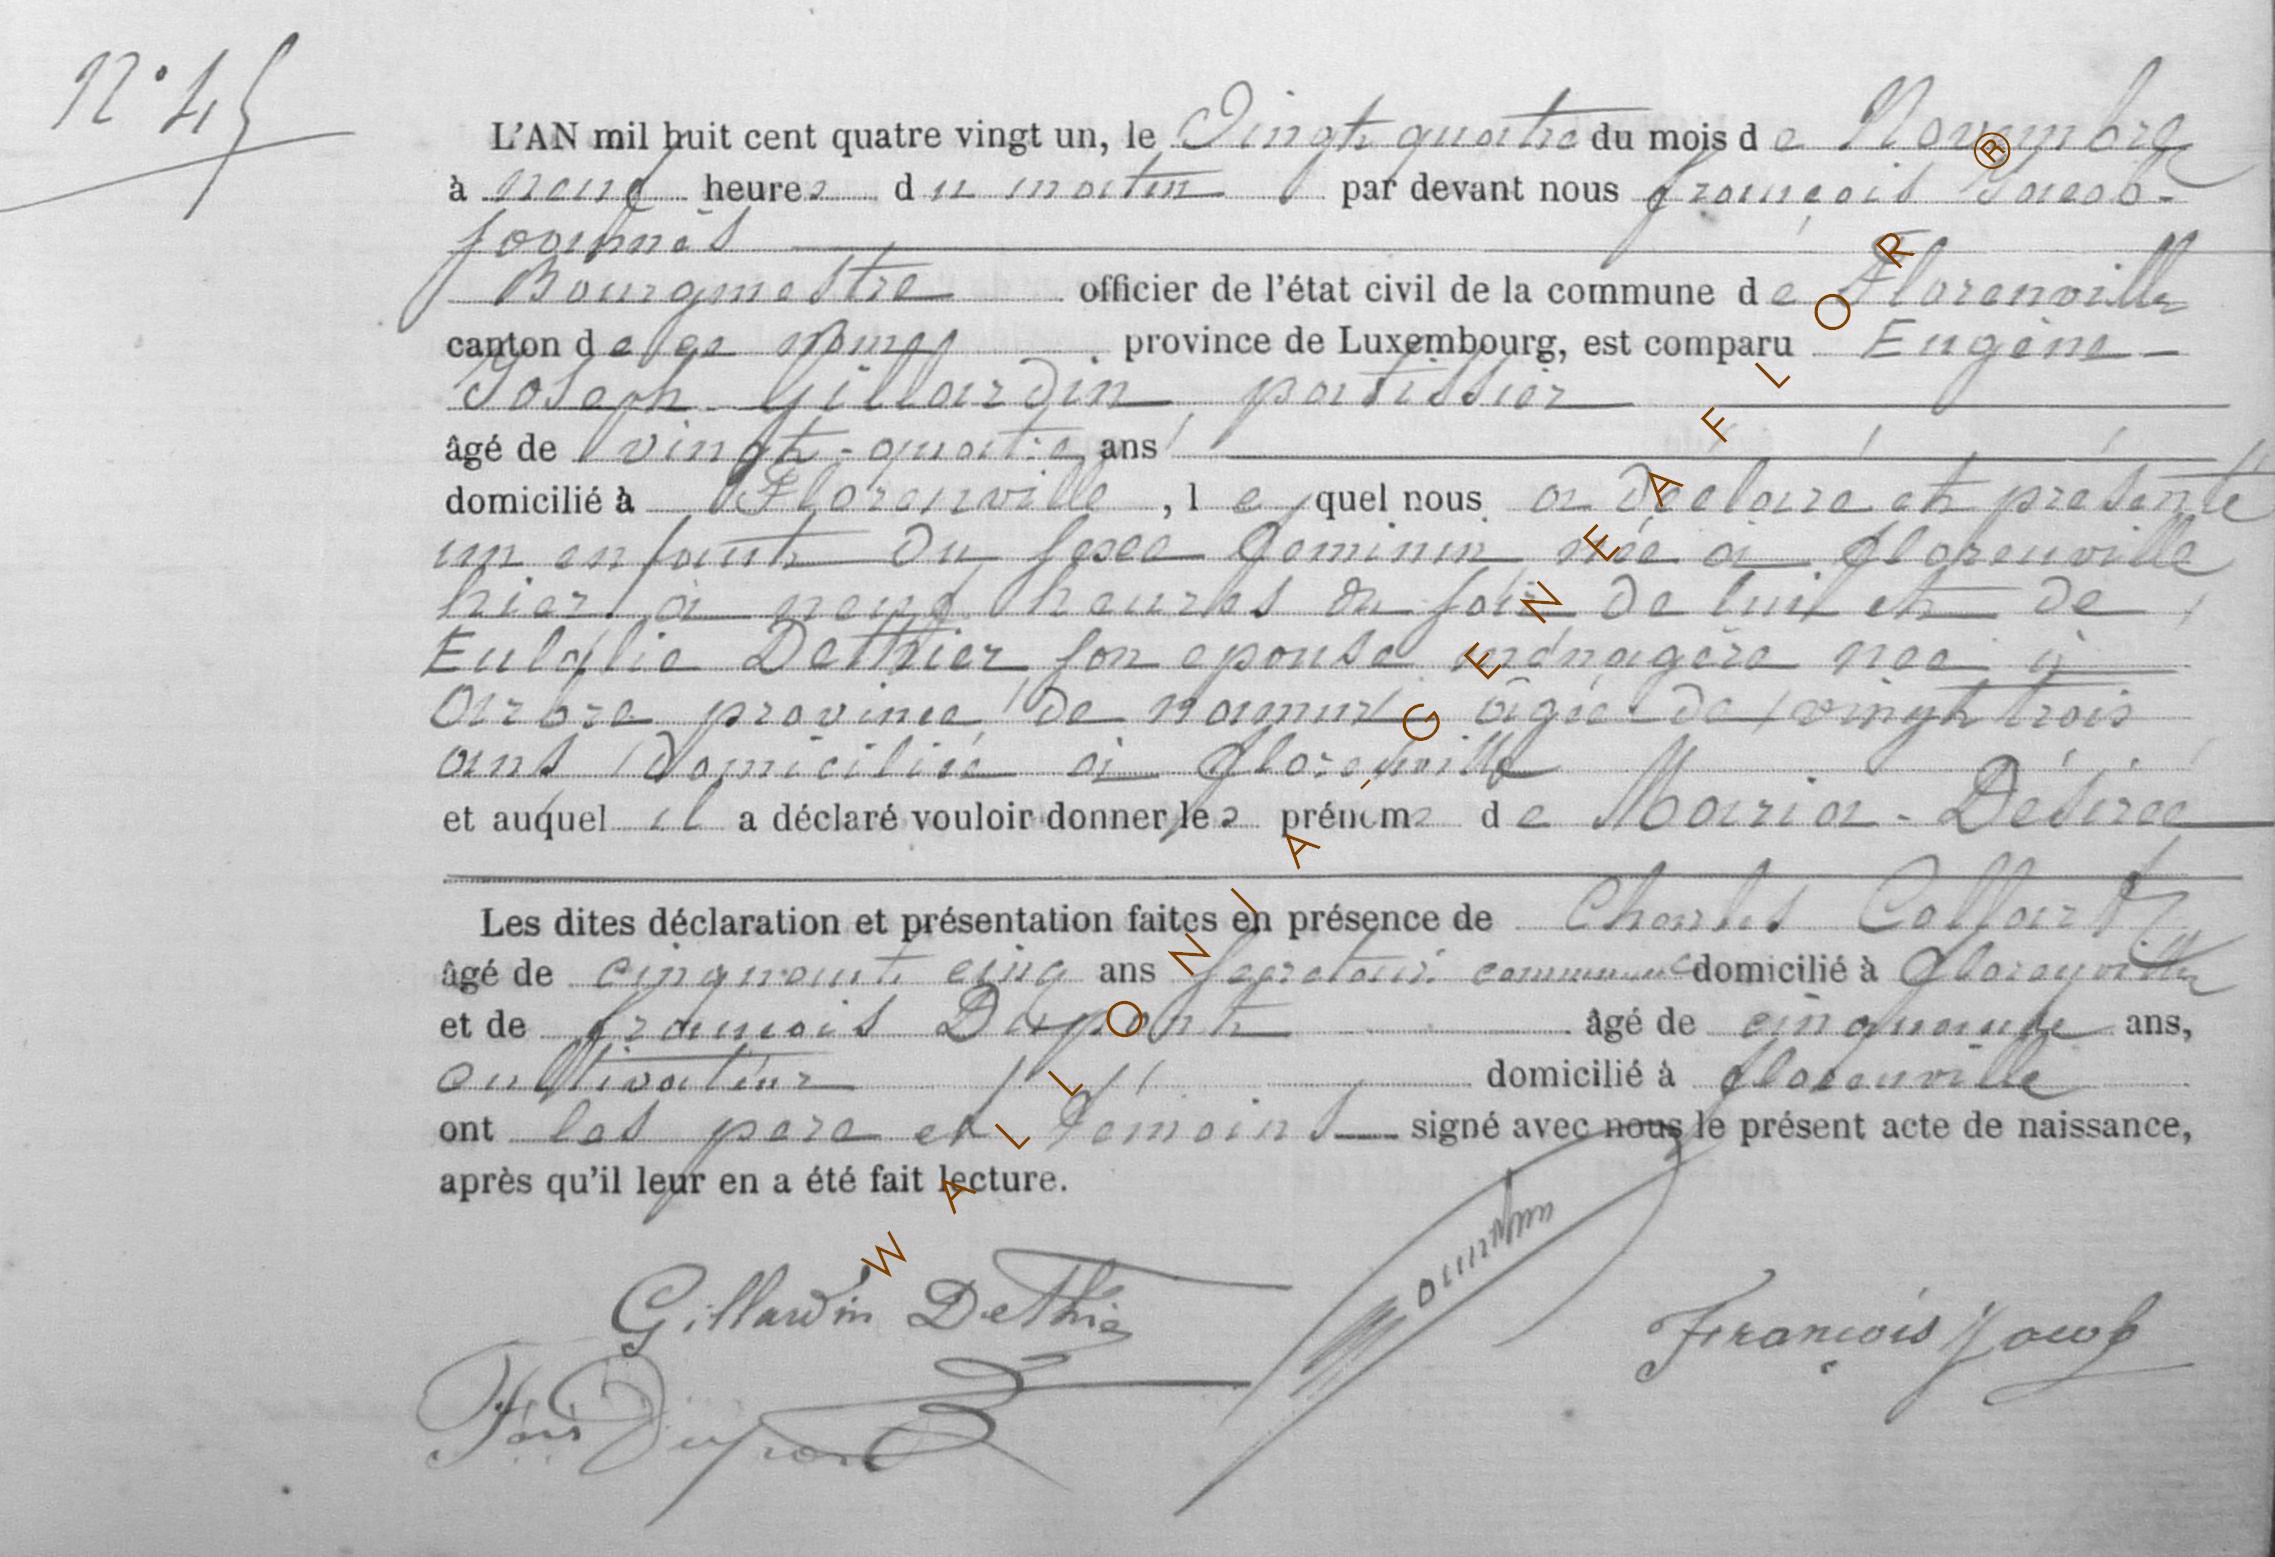 N° 45
L'AN mil huit cent quatre vingt un, le Vingt quatre du mois de Novembre
à neuf heures du matin par devant nous françois Jacob-
Bourgmestre officier de l'état civil de la commune de Florenville
canton de ce nom province de Luxembourg, est comparu Eugène
Joseph Gillardin, patissier
âgé de vingt-quatre ans
domicilié à Florenville, lequel nous a déclaré et présenté
un enfant du sexe feminin née à florenville
hier à neuf heures du soir de lui et de
Eulalie Dethier son epouse ménagère nee à
province de namur âgée de vingt trois
ans domiciliée à florenville
et auquel il a déclaré vouloir donner les prénoms de Maria-Désirée
Les dites déclaration et présentation faites en présence de Charles Collart
âgé de cinquante cinq ans secretaire communal domicilié à florenville
et de françois Dupont âgé de cinquante ans,
cultivateur domicilié à florenville
ont les pere et témoins signé avec nous le présent acte de naissance,
après qu'il leur en a été fait lecture.
Gillardin Dethier
François Jacob
Fçois Dupont
WALLONIA-GENEAFLOR ®